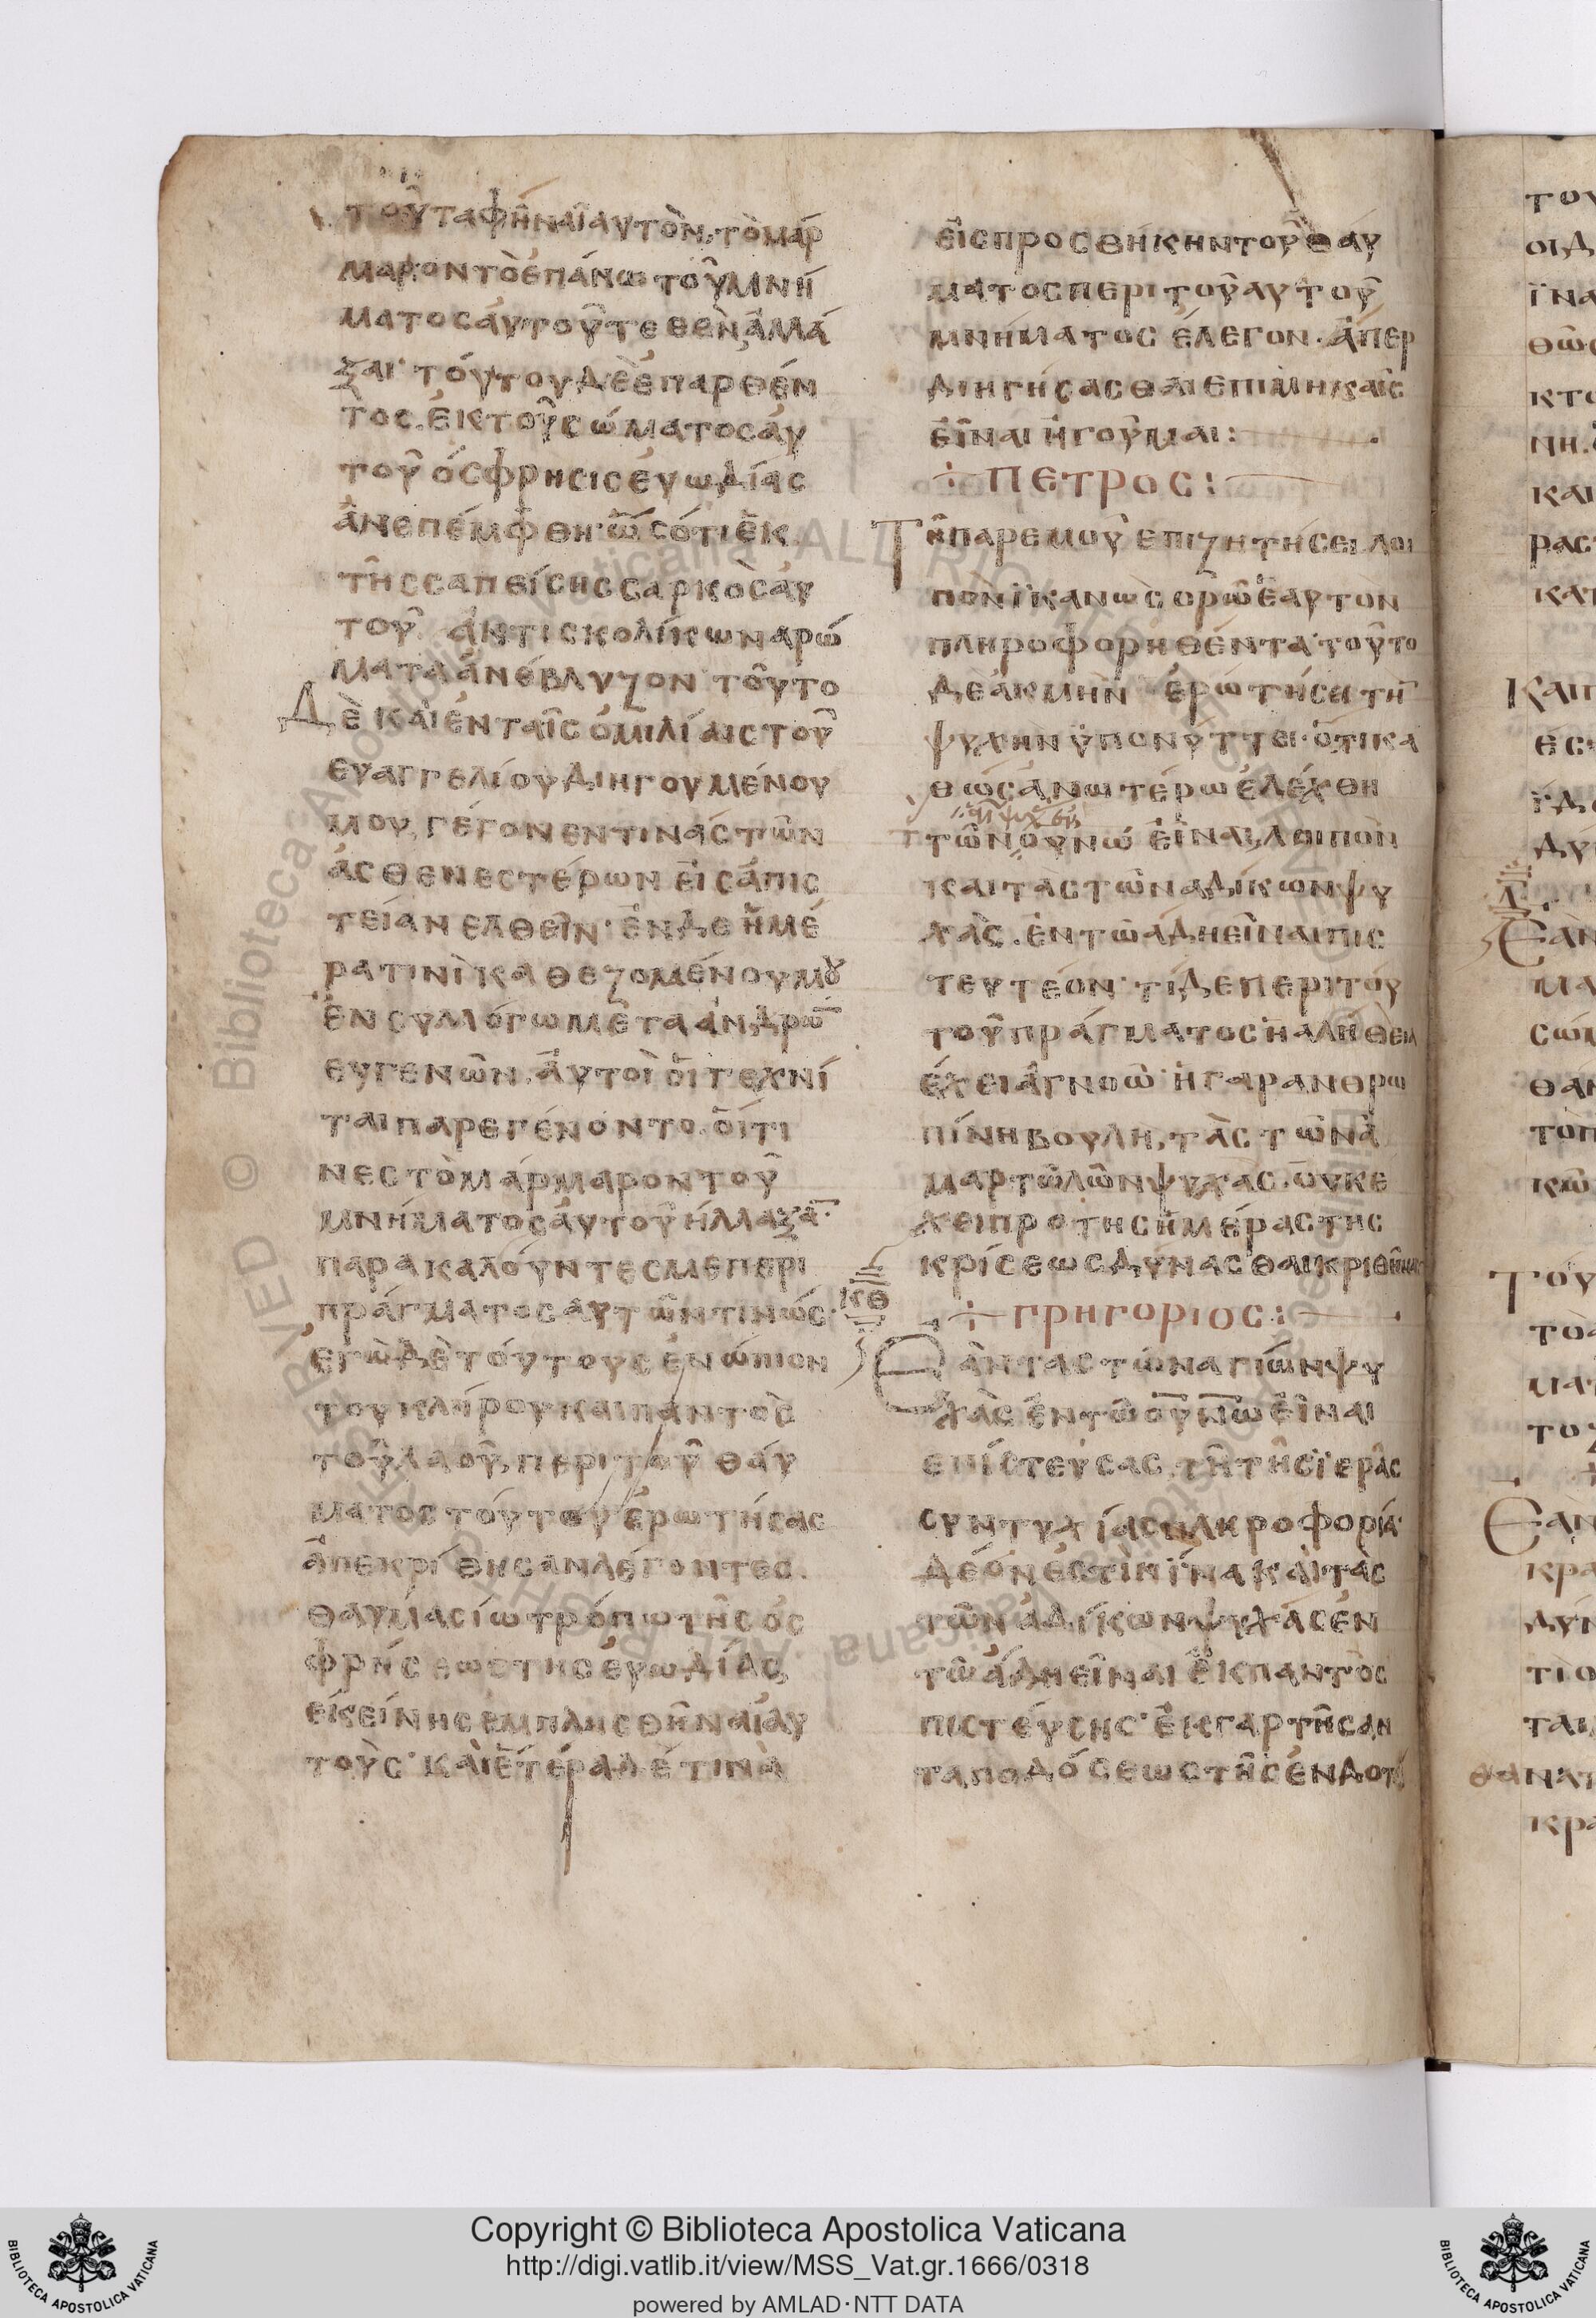 τοῦ ταφῆναι αὐτὸν, τὸ μάρ
μαρον τὸ ἐπάνω τοῦ μνή
ματος αὐτοῦ τεθὲν ἀλλά
ξαι· τούτου δὲ ἐπαρθέν
τος, ἐκ τοῦ σώματος αὐ
τοῦ ὄσφρησις εὐωδίας
ἀνεπέμφθη· ὡς ὅτι ἐκ
τῆς σαπείσης σαρκὸς αὐ
τοῦ ἀντὶ σκολίκων ἀρώ
ματα ἀνέβλυζον· τοῦτο
Δὲ καὶ ἐν ταῖς ὁμιλίαις τοῦ
εὐαγγελίου διηγουμένου
μου, γέγονεν τινὰς τῶν
ἀσθενεστέρων εἰς ἀπισ
τείαν ελθεῖν· ἐν δε ἡμέ
ρα τινὶ καθεζομένου μου
ἐν συλλόγω μετὰ ἀνδρῶ̅
εὐγενῶν, αὐτοὶ οἱ τεχνί
ται παρεγένοντο, οἵτι
νες τὸ μάρμαρον τοῦ
μνήματος αὐτοῦ ἤλλαξα̅·
παρακαλοῦντές με περὶ
πράγματος αὐτῶν τινὼς·
ἐγὼ δὲ τούτους ἐνώπιον
τοῦ κλήρου καὶ παντὸς
τοῦ λαοῦ, περὶ τοῦ θαύ
ματος τούτου ἐρωτήσας
ἀπεκρίθησαν λέγοντες.
θαυμασίω τρόπω τῆς ὀσ
φρήσεως τῆς εὐωδίας
ἐκείνης ἐμπλησθῆναι αὐ
τοὺς· καὶ ἕτερα δέ τινα
εἰς προσθήκην τοῦ θαύ
ματος περὶ τοῦ αὐτοῦ
μνήματος ἔλεγον. ἅπερ
διηγήσασθαι ἐπιμήκαις
εἶναι ἡγοῦμαι:
+ ΠΕΤΡΟC:
Τῆ παρ' ἐμοῦ ἐπιζητήσει λοι
πὸν ἱκανῶς ὁρῶ ἑαυτὸν
πληροφορηθέντα· τοῦτο
δὲ ἀκμὴν ἐρώτήσει τὴ̅
ψυχὴν ὑπονύττει· ὅτι κα
θὼς ἀνωτέρω ἐλέχθη
τῶν οὐνῶ εἶναι, λοιπὸν
καὶ τὰς τῶν ἀδίκων ψυ
χὰς. ἐν τῶ ἅδη εἶναι πισ
τευτέον· τί δε περὶ τού
του πράγματος ἡ ἀλήθεια
ἔχει ἀγνοῶ· ἡ γὰρ ἀνθρω
πίνη βουλὴ, τὰς τῶν ἁ
μαρτωλῶν ψυχὰς. οὐκ ἔ
χει πρὸ τῆς ἡμέρας τῆς
κρίσεως δύνασθαι κριθῆναι
ΚΘ
+ ΓΡΗΓΟΡΙΟC:
Ἐὰν τὰς τῶν ἁγίων ψυ
χὰς ἐν τῶ ο̅υ̅ν̅ω̅ εἶναι
ἐπίστευσας, τῆ τῆς ϊερᾶς
συντυχίας πληροφορία·
δέον ἐστὶν ἵνα καὶ τὰς
τῶν ἀδίκων ψυχὰς ἐν
τῶ ἅδη εἶναι ἐκ παντὸς
πιστεύσης· ἐκ γὰρ τῆς ἀν
ταποδόσεως τῆς ἔνδοτι
Copyright © Biblioteca Apostolica Vaticana
http://digi.vatlib.it/view/MSS_Vat.gr.1666/0318
powered by AMLAD·NTT DATA
BIBLIOTECA APOSTOLICA VATICANA
BIBLIOTECA APOSTOLICA VATICANA